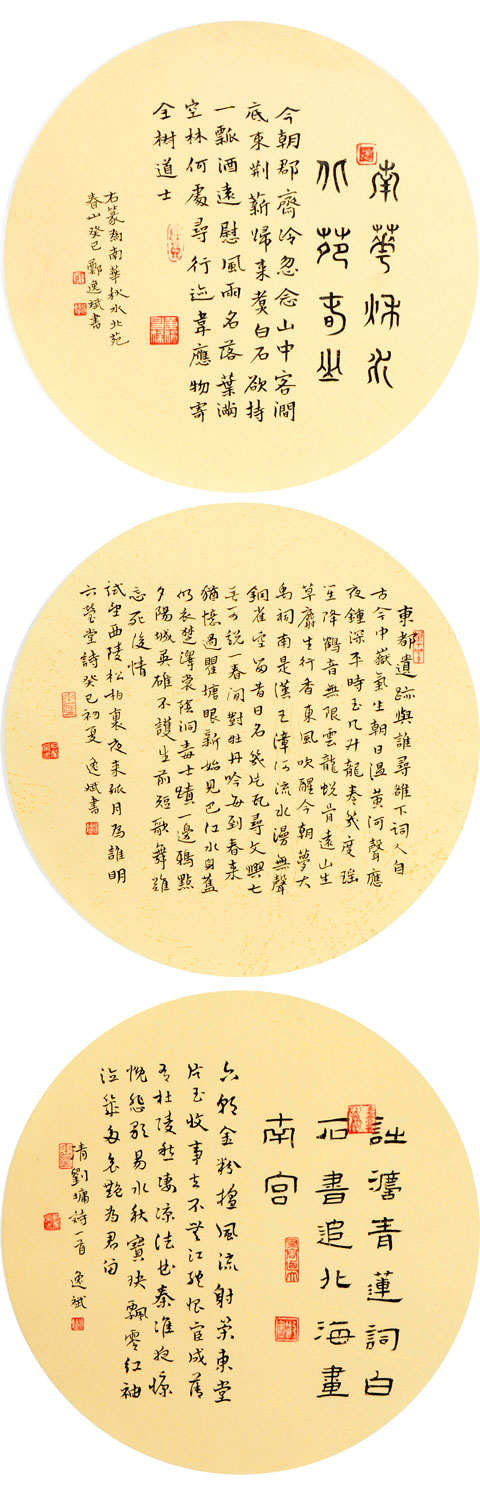 南華秋水
北苑春山
今朝郡齋冷忽念山中客澗
底束荆薪歸来煮白石欲持
一瓢酒遠慰風雨名落葉滿
空林何處尋行迹韋應物寄
全樹道士
右篆為南華秋水北苑
春山癸巳鄭逸斌書
東都遺跡與誰尋雒下詞人自
古今中嶽氣生朝日温黄河聲應
夜鍾深平時玉几升龍杳幾度瑶
笙降鶴音無限雲龍蜕骨遠山生
草麝生行香東風吹醒今朝夢大
禹祠南是漢王漳河流水漫無聲
銅雀空留昔日名幾片瓦尋文興七
無可說一春閒對牡丹吟每到春来
猶憶過瞿塘眼新始見巴江水身舊
仍衣楚澤裳陰洞毒士蹟一邊鴉點
夕陽城英雄不護生前短歌舞雖
忘死後情
試望西陵松柏裏夜来孤月為誰明
六瑩堂詩癸巳初夏逸斌書
詩灋青蓮詞白
石書追北海畫
南宫
六朝金粉擅風流射策東堂
片玉收事去不堪江總恨官成舊
有杜陵愁凄凉法曲秦淮夜慷
慨悲歌易水秋寶玦飄零紅袖
泣幾哀艷為君留
清劉墉詩一首 逸斌